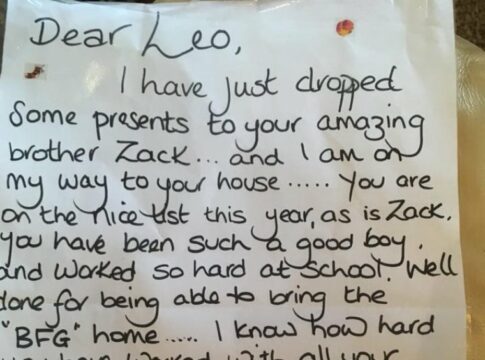 Dear Leo,
I have just dropped
Some presents to your amazing
brother Zack... and I am on
my way to your house ..... You are
on the nice list this year, as is Zack.
you have been such a good boy.
and worked so hard at school. Well
done for being able to bring the
"BFG" home ..... I know how hard
you have worked with all your